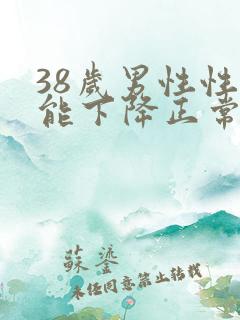 38歲男性性
能下降正常
蘇鎏
未经同意禁止转载